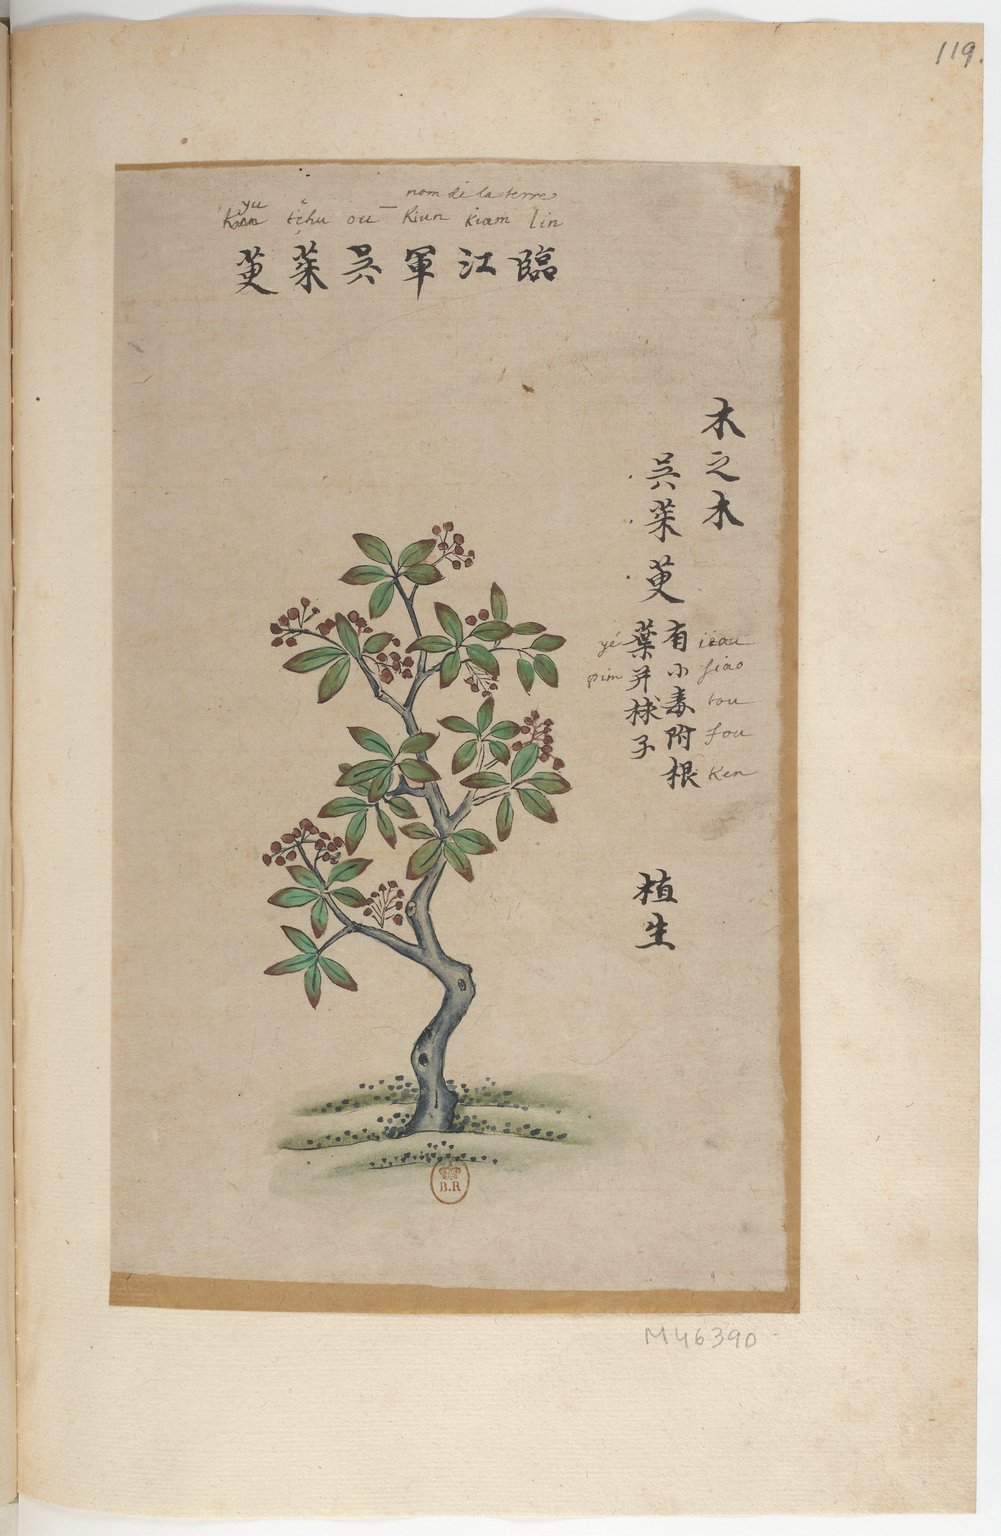 119.
nom de la terre
yu
tchu ou Kiun Kiam lin
臨江軍吳茱萸
木之木
吳茱萸
有小毒附根
葉并梂子
iεou
siao
tou
fou
Ken
yé
pim
植生
B.R
M46390